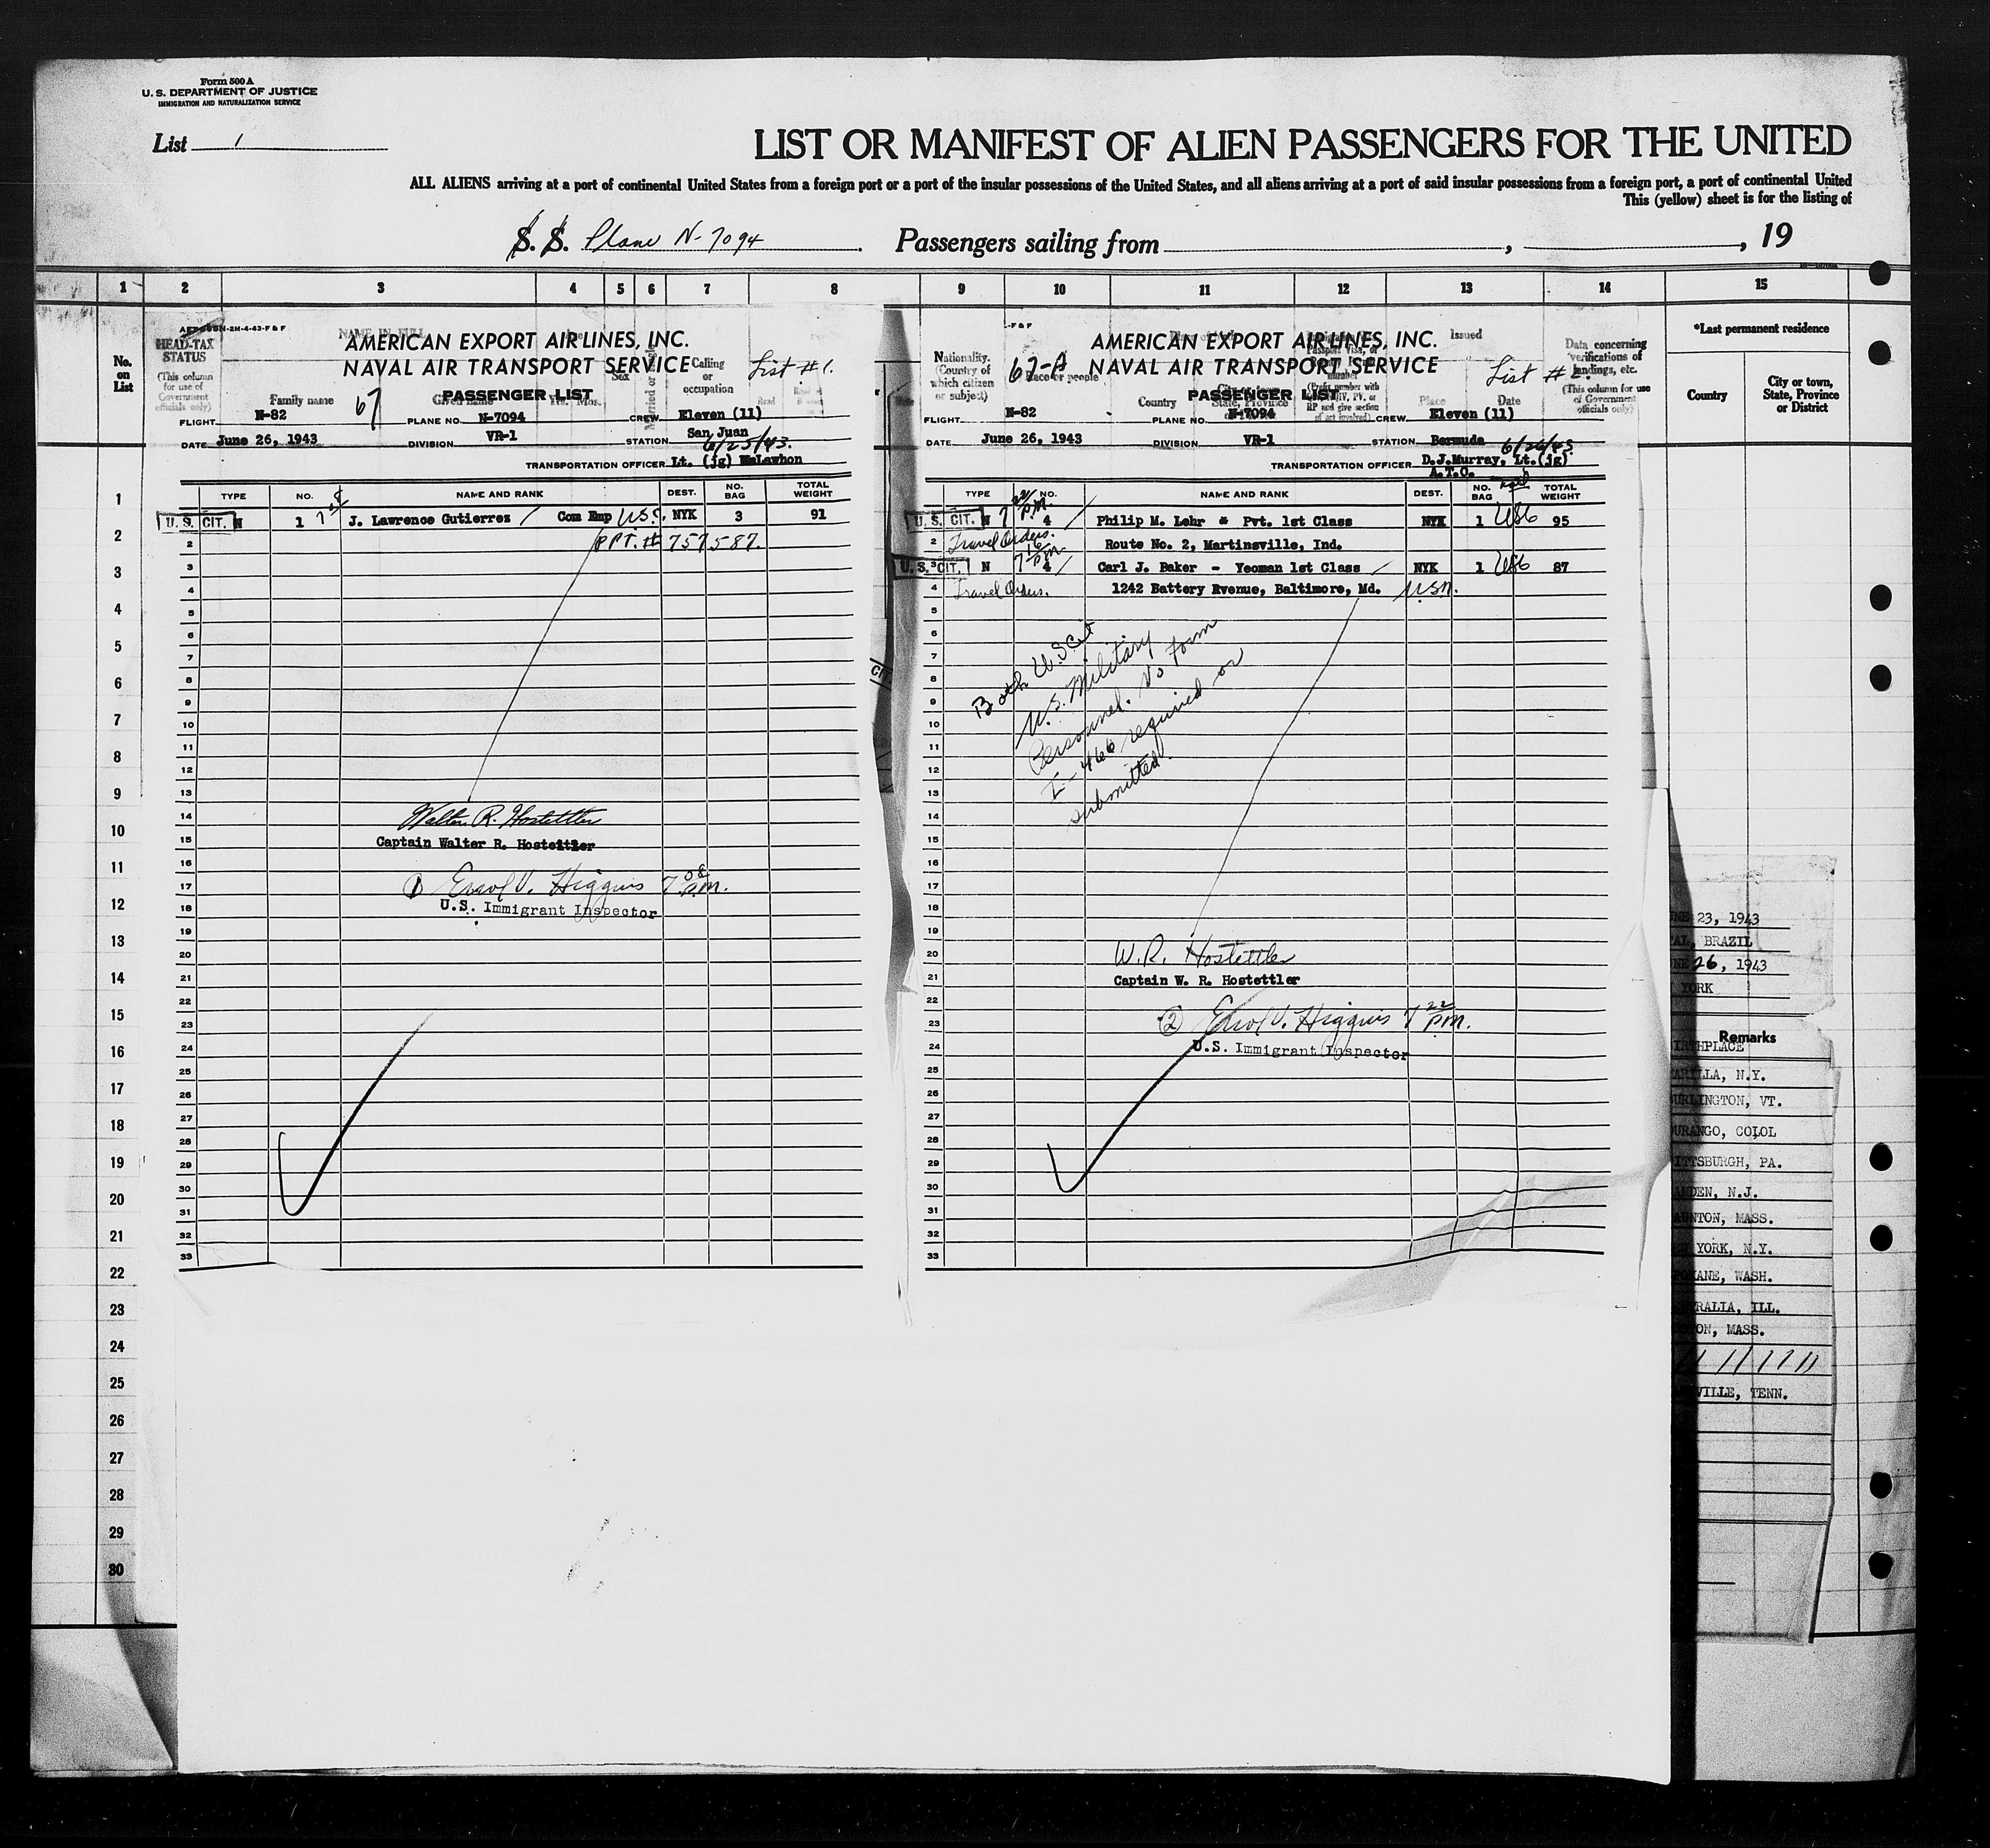 Form 500 A
U. S. DEPARTMENT OF JUSTICE
IMMIGRATION AND NATURALIZATION SERVICE
List 1
LIST OR MANIFEST OF ALIEN PASSENGERS FOR THE UNITED
ALL ALIENS arriving at a port of continental United States from a foreign port or a port of the insular possessions of the United States, and all aliens arriving at a port of said insular possessions from a foreign port, a port of continental United
This (yellow) sheet is for the listing of
S. S. Plane N-7094 Passengers sailing from , , 19
1 2 3 4 5 6 7 8 9 10 11 12 13 14 15
No. on List
HEAD-TAX STATUS
(This column for use of Government officials only)
NAME IN FULL
Family name
Given name
Yrs. Mos.
Sex
Calling or occupation
Read
Nationality. (Country of which citizen or subject)
Race or people
Country
Issued
Place
Date
Data concerning verifications of landings, etc.
(This column for use of Government officials only)
*Last permanent residence
Country
City or town, State, Province or District
-2M-4-43-F & F
AMERICAN EXPORT AIRLINES, INC.
NAVAL AIR TRANSPORT SERVICE
List #1.
PASSENGER LIST
67
FLIGHT N-82 PLANE NO. N-7094 CREW Eleven (11)
DATE June 26, 1943 DIVISION VR-1 STATION San Juan
6/25/43.
TRANSPORTATION OFFICER Lt. (jg) McLawhon
TYPE NO. NAME AND RANK DEST. NO. BAG TOTAL WEIGHT
U. S. CIT. N 1 7 08 J. Lawrence Gutierrez Com Emp U.S. NYK 3 91
PPT. # 757587.
Walter R. Hostettler
Captain Walter R. Hostettler
1 Errol V. Higgins 7 08 pm.
U.S. Immigrant Inspector
-F & F
AMERICAN EXPORT AIRLINES, INC.
67-A
NAVAL AIR TRANSPORT SERVICE
List #2.
PASSENGER LIST
FLIGHT N-82 PLANE NO. N-7094 CREW Eleven (11)
DATE June 26, 1943 DIVISION VR-1 STATION Bermuda 6/26/43
TRANSPORTATION OFFICER D.J.Murray, Lt.(jg)
A.T.O.
TYPE NO. NAME AND RANK DEST. NO. BAG TOTAL WEIGHT
7 22 P.M.
U. S. CIT. N 4 Philip M. Lehr * Pvt. 1st Class NYK 1 95
Travel Orders. Route No. 2, Martinsville, Ind.
7 16 P.M.
U. S. CIT. N 4 Carl J. Baker - Yeoman 1st Class NYK 1 87
Travel Orders. 1242 Battery Avenue, Baltimore, Md. USN.
Both U.S. Cit
U.S. Military
Personnel. No form
I-466 required or
submitted.
W. R. Hostettler
Captain W. R. Hostettler
2 Errol V. Higgins 7 22 pm.
U.S. Immigrant Inspector
CIT
1
2
3
4
5
6
7
8
9
10
11
12
13
14
15
16
17
18
19
20
21
22
23
24
25
26
27
28
29
30
31
32
33
1
2
3
4
5
6
7
8
9
10
11
12
13
14
15
16
17
18
19
20
21
22
23
24
25
26
27
28
29
30
23, 1943
BRAZIL
26, 1943
YORK
Remarks
BIRTHPLACE
N.Y.
BURLINGTON, VT.
DURANGO, COLOL
PITTSBURGH, PA.
CAMDEN, N.J.
TAUNTON, MASS.
YORK, N.Y.
SPOKANE, WASH.
ILL.
MASS.
VILLE, TENN.